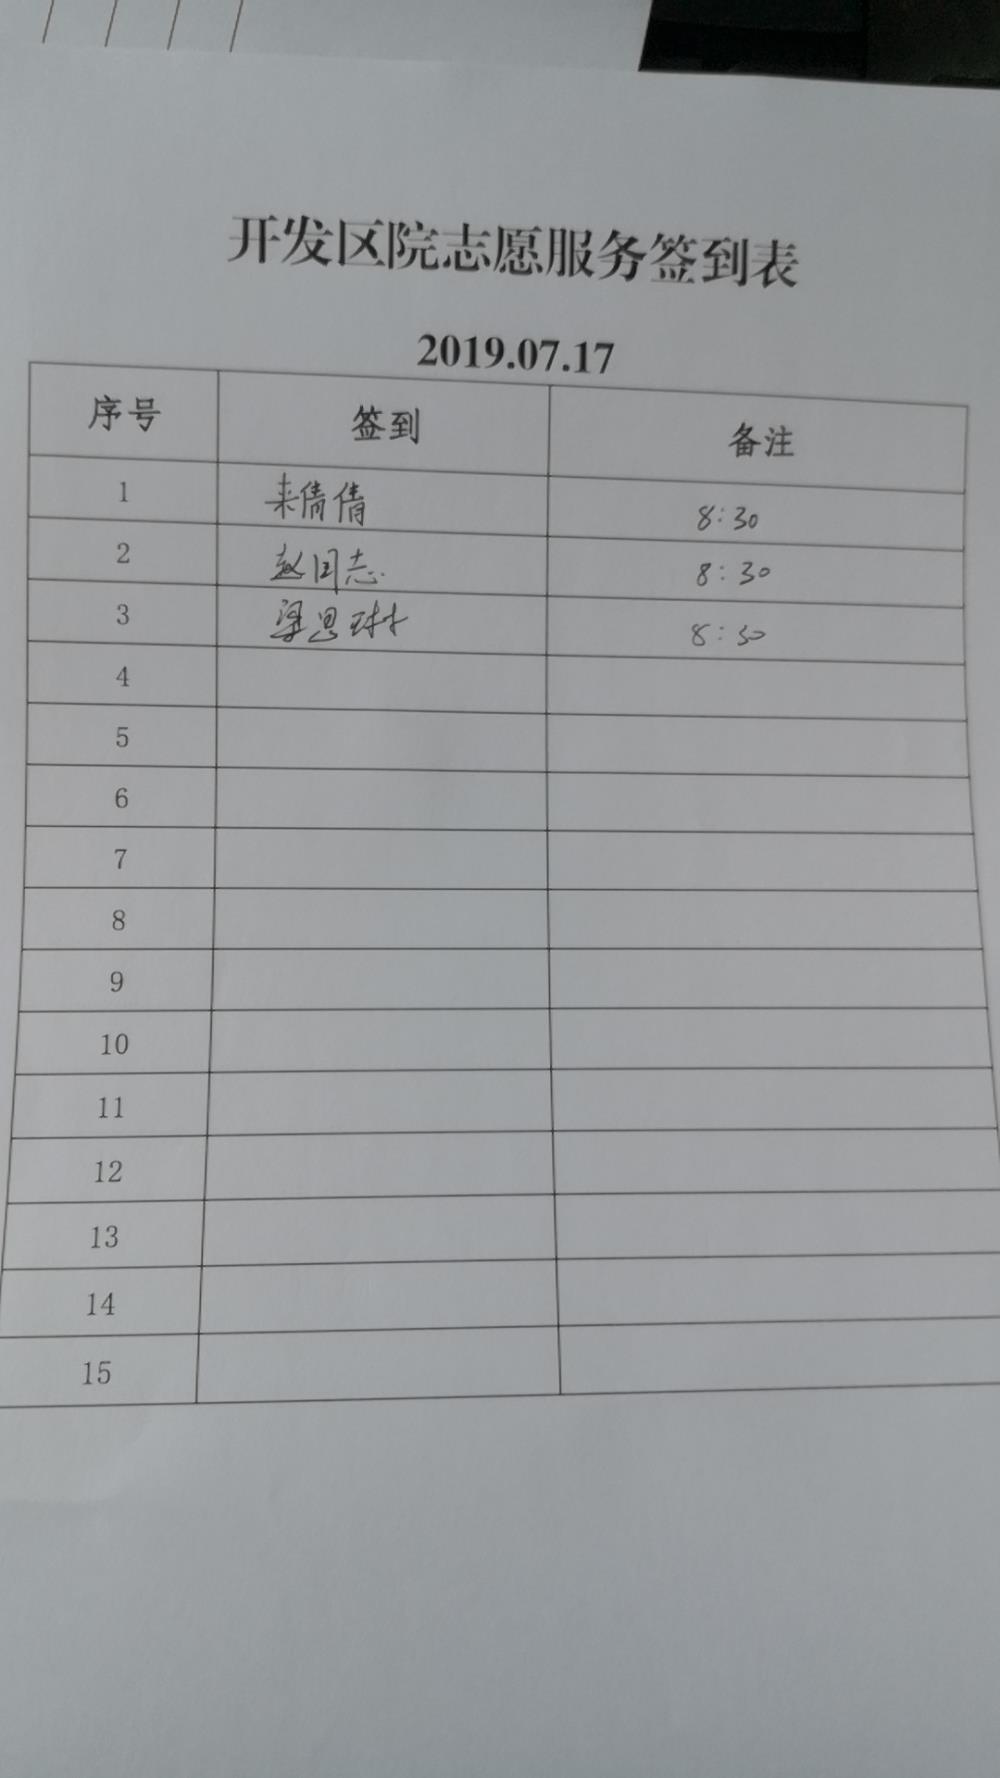 开发区院志愿服务签到表
2019.07.17
序号 签到 备注
1 来倩倩 8:30
2 赵国志 8:30
3 梁思琳 8:30
4
5
6
7
8
9
10
11
12
13
14
15